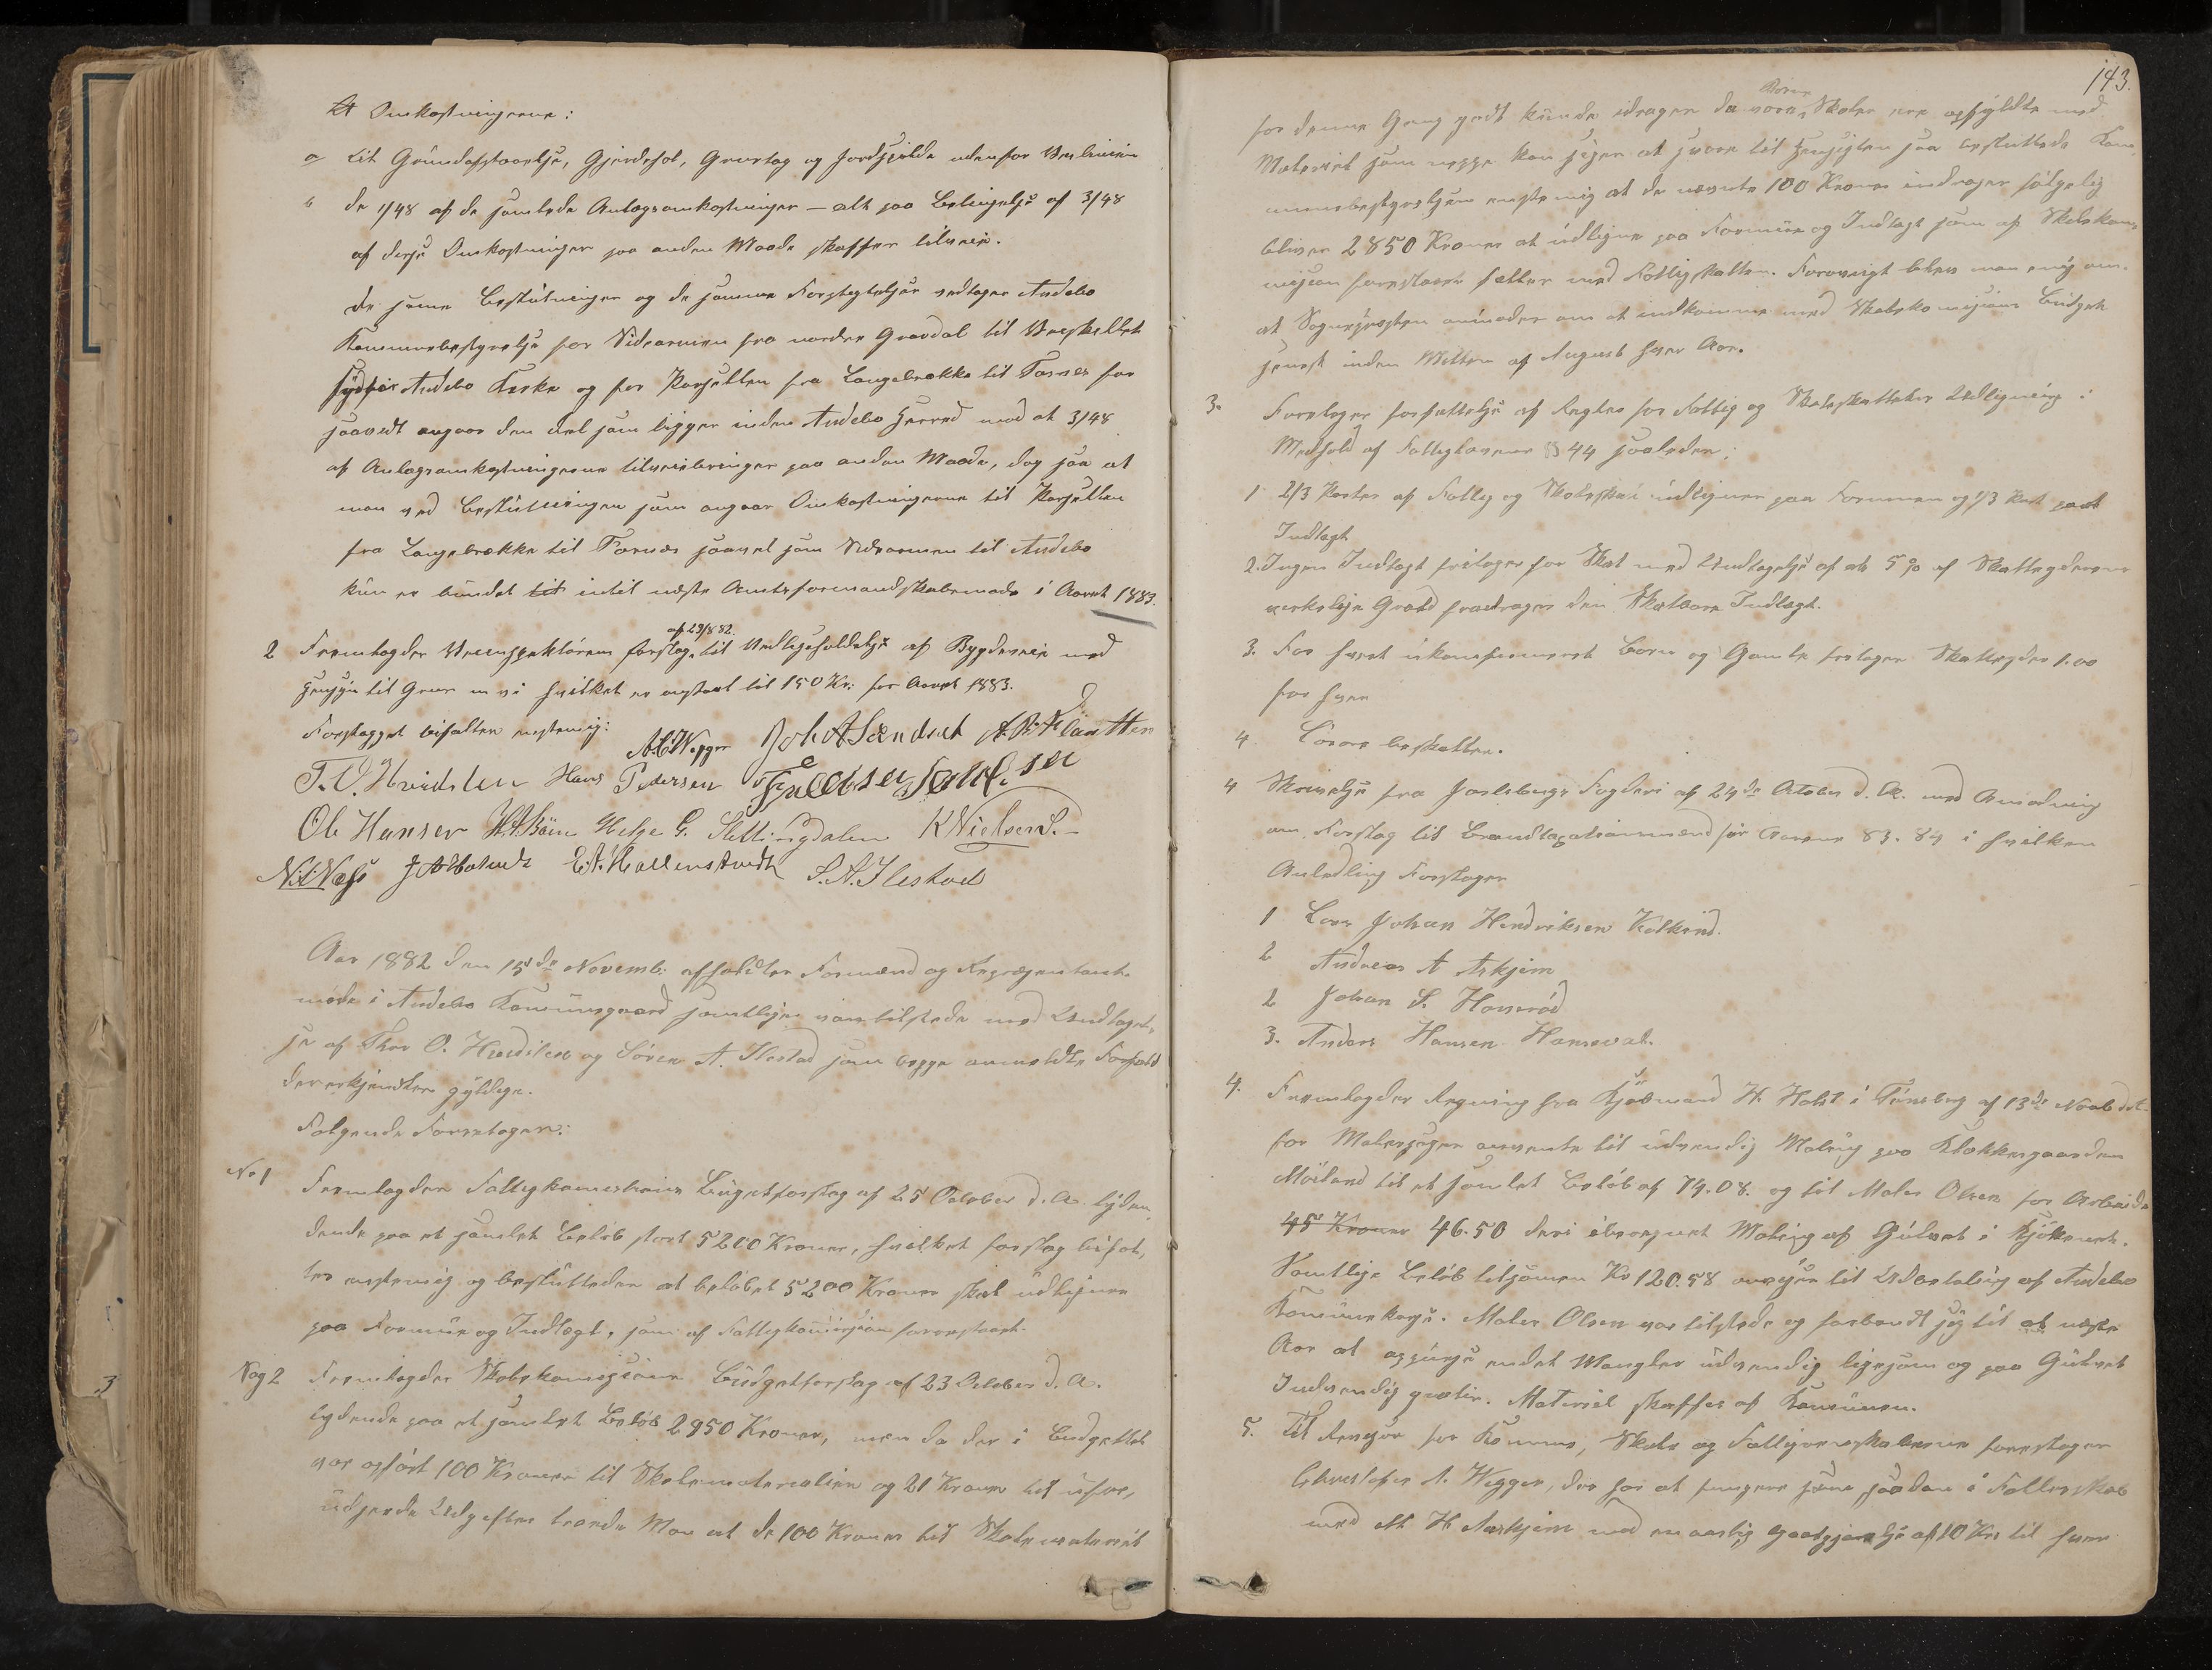 At Omkostningerne:
a til Grundafstaaelse, Gjerdehol, Grustag og Jordskade udenfor Veilinien
b de 1/48 af de samlede Anlægsomkostninger – alt paa Betingelse af 3/48
af disse Omkostninger paa anden Maade skaffes tilveie.
De samme Beslutninger og de samme Forpligtelser vedtager Andebo
Kommunebestyrelse for Veiarmen fra nordre Gravdal til Veiskellet
sydfor Andebo Kirke og for Parsellen fra Langebrække til Fornes for
saavidt angaar den del som ligger inden Andebo Herred mod at 3/48
af Anlægsomkostningerne tilveiebringes paa anden Maade, dog saa at
man ved Beslutningen som angaar Omkostningerne til Parsellen
fra Langebrække til Fornæs saavel som Veiarmen til Andebo
kun er bundet til intil næste Amtsformandskabsmøde i Aaret 1883.
af 29/8 82.
2 Fremlagdes Veiinspektørens forslag til Vedligeholdelse af Bygdeveie med
Hensyn til Grus m v i hvilket er opført til 150 Kr: for Aaret 1883.
Forslaget bifaltes enstemig:
A.C. Wegger Joh A Sandset A. R. Flaatten
T. O. Hvidsten Hans Pedersen Jacobsen
Ole Hansen H. A. Bøen Helge G. Slettingdalen K Nielsen
N. L. Næss E. A. Hallenstvedt S. A. Ilestad
Aar 1882 den 15de Novemb: afholdtes Formænd og Repræsentant-
møde i Andebo Kommunegaard samtlige var tilstede med Undtagel-
se af Thor O. Hvidsten og Søren A. Ilestad som begge anmeldte Forfald
der erkjendtes gyldige.
Følgende Foretoges:
No 1 Fremlagdes Fattigkommissionens Budgetforslag af 25 October d. A. lyden-
dende paa et samlet Beløb stort 5200 Kroner, hvilket forslag bifal-
tes enstemig og besluttedes at beløbet 5200 Kroner skal udlignes
paa Formue og Indtægt, som af Fattigkommission foreslaaet.
No 2 Fremlagdes Skolekomissionens Budgetforslag af 23 October d. A.
lydende paa et samlet Beløb 2950 Kroner, men da der i Budgettet
var opført 100 Kroner til Skolematerialier og 21 Kroner til ufor-
udseede Udgifter troede Man at de 100 Kroner til Skolemateriel
143.
for denne Gang godt kunde idrages da vore Skoler ere opfyldte med
Materiel som neppe kan siges at svare til Hensigten saa besluttede Kom-
munebestyrelsen enstemig at de nævnte 100 Kroner inddrages følgelig
bliver 2850 Kroner at udligne paa Formue og Indtægt som af Skolekom-
mision foreslaaet fælles med Fattigskatten. Forøvrigt blev man enig om
at Sognepresten anmodes om at indkomme med Skolekomisions Budget
senest inden Midten af August hver Aar.
3. Foretoges forfattelse af Regler for Fattig og Skoleskattens Udligning i
Medhold af Fattiglovens § 44 saaledes:
1 2/3 Parter af Fattig og Skoleskat udlignes paa Formuen og 1/3 Part paa
Indtægt
2. Ingen Indtægt fritages for Skat med Undtagelse af at 5 % af Skatteyderens
virkelige Gjæld fradrages den Skatbare Indtægt.
3. For hvert ukonfirmeret Barn og Gamle fritages Skatteyder 1.00
for hver
4 beskattes.
4 Skrivelse fra Jarlsbergs Fogderi af 24de Octobr d. A. med Anmodning
om Forslag til Brandtaxationsmænd for Aarene 83. 84 i hvilken
Anledning Foreslages
1 Lars Johan Hendriksen
2 Andreas A Askjem
2 Johan S. Hanserød
3. Anders Hansen
4. Fremlagdes Regning fra Kjøbmand H. Holst i Tønsberg af 13de
for Malersager anvendte til udvendig Maling paa Klokkergaarden
Møiland til et samlet Beløb af 74.08. og til Maler Olsen for Arbeide
45 Kroner 46.50 deri iberegnet Maling af Gulvet i Kjøkkenet.
Samtlige Beløb tilsamen Kr 120.58 anvises til Udbetaling af Andebo
Komunekasse. Maler Olsen var tilstede og forbandt sig til at næste
Aar at oppudse endel Mangler udvendig ligesom og paa Gulvet
Indvendig gratis. Materiel skaffes af Komunen.
5. Til Revisor for Komune, Skole og Fattigregnskaberne foreslages
A. Wegger, der har at fungere som saadan i Fællesskab
med M H Askjem med en aarlig Godtgjørelse af 10 Krs til hver